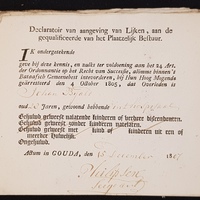 Declaratoir van aangeving van Lijken, aan de
gequalificeerde van het Plaatzelijk Bestuur.
IK ondergetekende
geve bij deze kennis, en zulks ter voldoening aan het 24 Art.
der Ordonnantie op het Recht van Successie, alomme binnen 't
Bataafsch Gemeenebest introduceeren, bij Hun Hoog Mogende
gearresteerd den 4 October 1805, dat Overleden is
oud Jaren, gewoond hebbende
Gehuwd geweest nalatende kinderen of verdere discendenten.
Gehuwd geweest zonder kinderen natelaten.
Gehuwd geweest met kind of kinderen uit een of
meerder Huwelijk.
Ongehuwd.
Actum in GOUDA, den 15 December 180